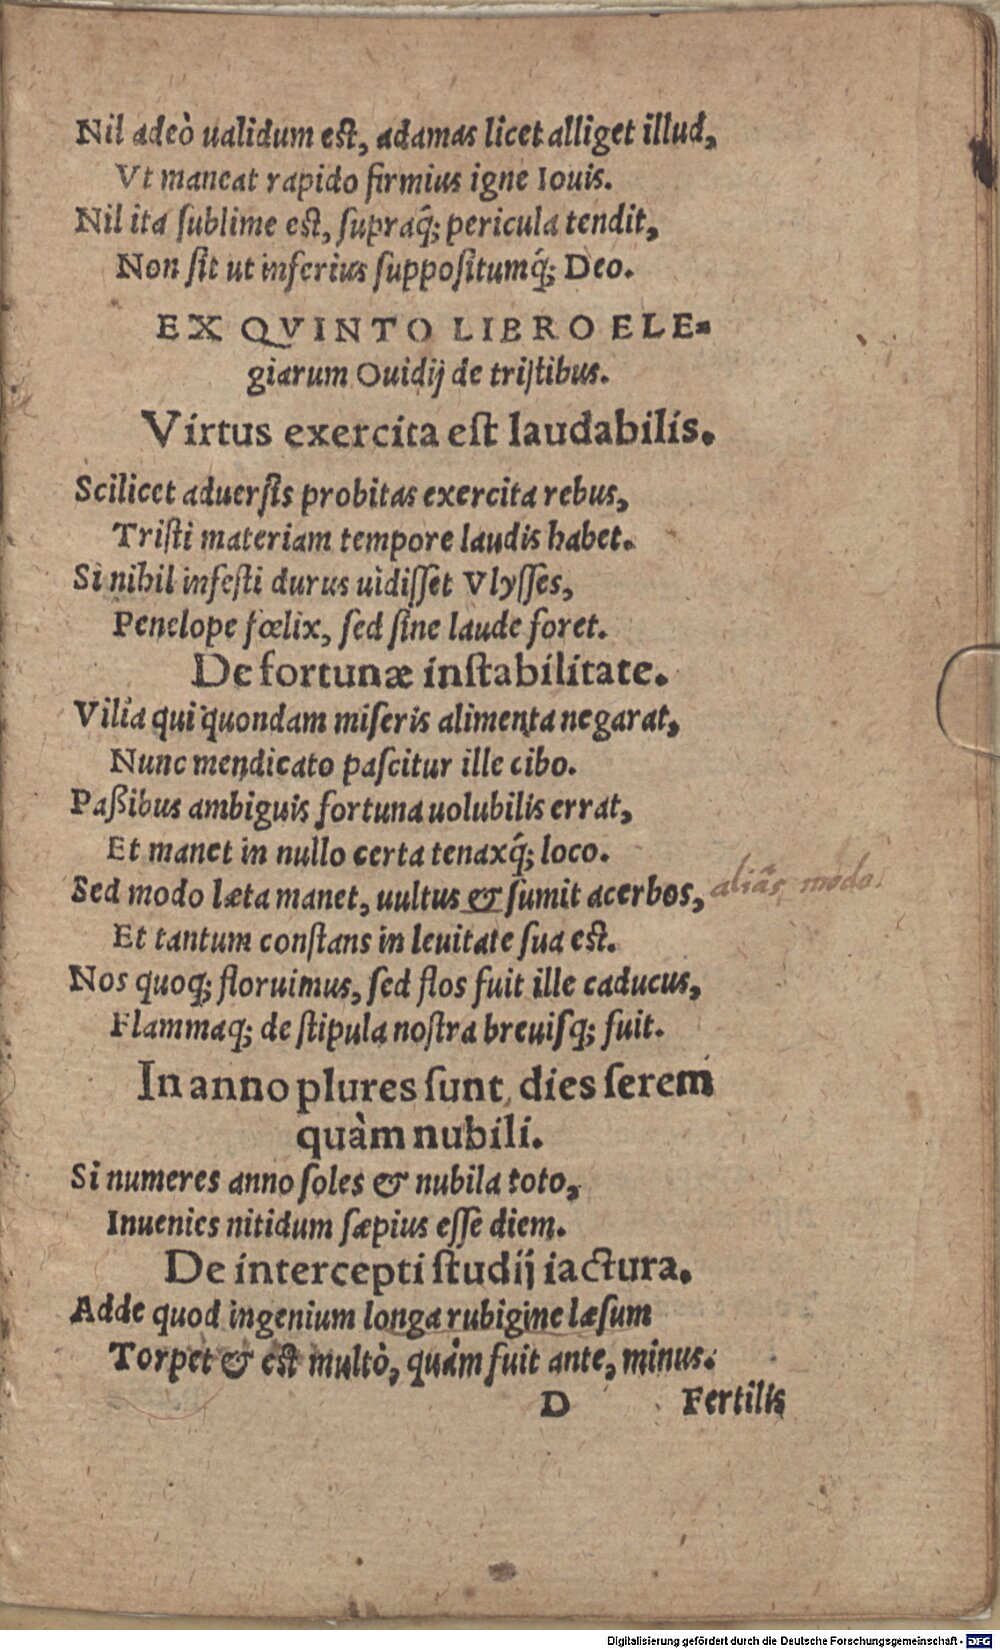 Nil adeò ualidum est, adamas licet alliget illud,
Vt maneat rapido firmius igne Iouis.
Nil ita sublime est, supraq́; pericula tendit,
Non sit ut inferius suppositumq́; Deo.
EX QVINTO LIBRO ELE-
giarum Ouidij de tristibus.
Virtus exercita est laudabilis.
Scilicet aduersis probitas exercita rebus,
Tristi materiam tempore laudis habet.
Si nihil infesti durus uidisset Vlysses,
Penelope fœlix, sed sine laude foret.
De fortunæ instabilitate.
Vilia qui quondam miseris alimenta negarat,
Nunc mendicato pascitur ille cibo.
Paßibus ambiguis fortuna uolubilis errat,
Et manet in nullo certa tenaxq́; loco.
Sed modo læta manet, uultus & sumit acerbos, aliâs modo.
Et tantum constans in leuitate sua est.
Nos quoq; floruimus, sed flos fuit ille caducus,
Flammaq; de stipula nostra breuisq; fuit.
In anno plures sunt dies serem
quàm nubili.
Si numeres anno soles & nubila toto,
Inuenies nitidum sæpius esse diem.
De intercepti studij iactura.
Adde quod ingenium longa rubigine læsum
Torpet & est multò, quàm fuit ante, minus.
D Fertilis
Digitalisierung gefördert durch die Deutsche Forschungsgemeinschaft - DFG